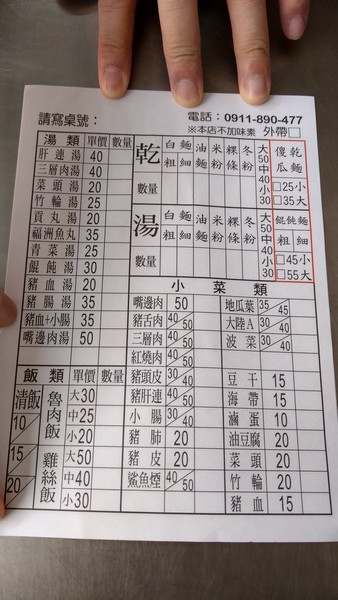 請寫桌號：
電話：0911-890-477
※本店不加味素 外帶□
湯類 單價 數量
肝連湯 40
三層肉湯 40
菜頭湯 20
竹輪湯 25
貢丸湯 20
福洲魚丸 35
青菜湯 25
餛飩湯 30
豬血湯 20
豬腸湯 35
豬血+小腸 35
嘴邊肉湯 50
乾 白粗 麵細 油麵 米粉 粿條 冬粉 大50中40小30
數量
傻瓜乾麵
□25小
□35大
湯 白粗 麵細 油麵 米粉 粿條 冬粉 大50中40小30
數量
餛飩麵
粗細
□45小
□55大
小菜類
嘴邊肉 50
豬舌肉 40/50
三層肉 40/50
紅燒肉 40/50
豬頭皮 30/40
豬肝連 40/50
小腸 30/40
豬肺 20
豬皮 20
鯊魚煙 40/50
地瓜葉 35/45
大陸A 30/40
菠菜 30/40
豆干 15
海帶 15
滷蛋 10
油豆腐 20
菜頭 20
竹輪 20
豬血 15
飯類 單價 數量
清飯 10/15/20
魯肉飯 大30
中25
小20
雞絲飯 大50
中40
小30